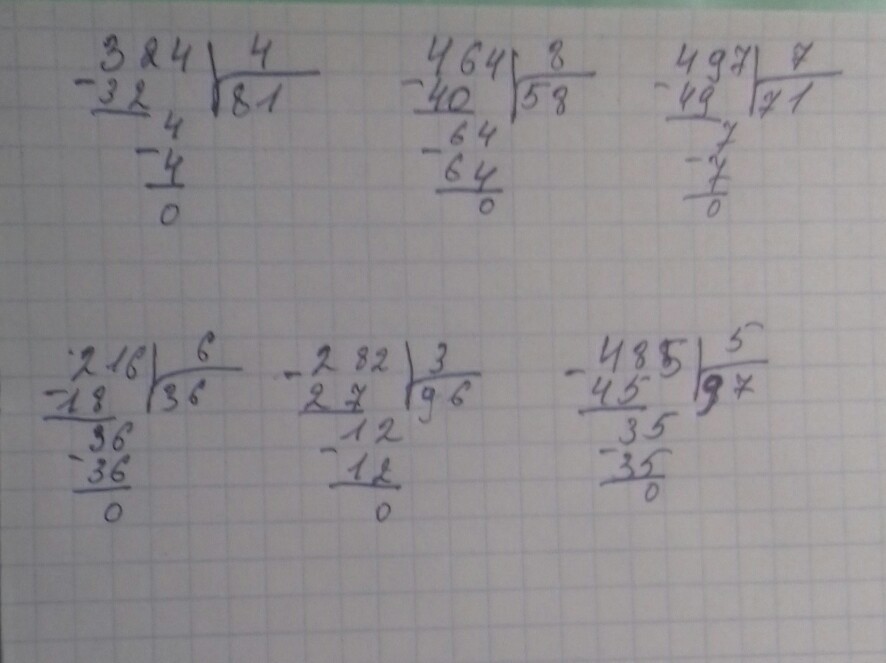 324 4 464 8 497 7
-32 81 -40 58 -49 71
4 64 7
-4 -64 -7
0 0 0
216 6 -282 3 -485 5
-18 36 27 96 45 97
36 12 35
-36 -12 -35
0 0 0